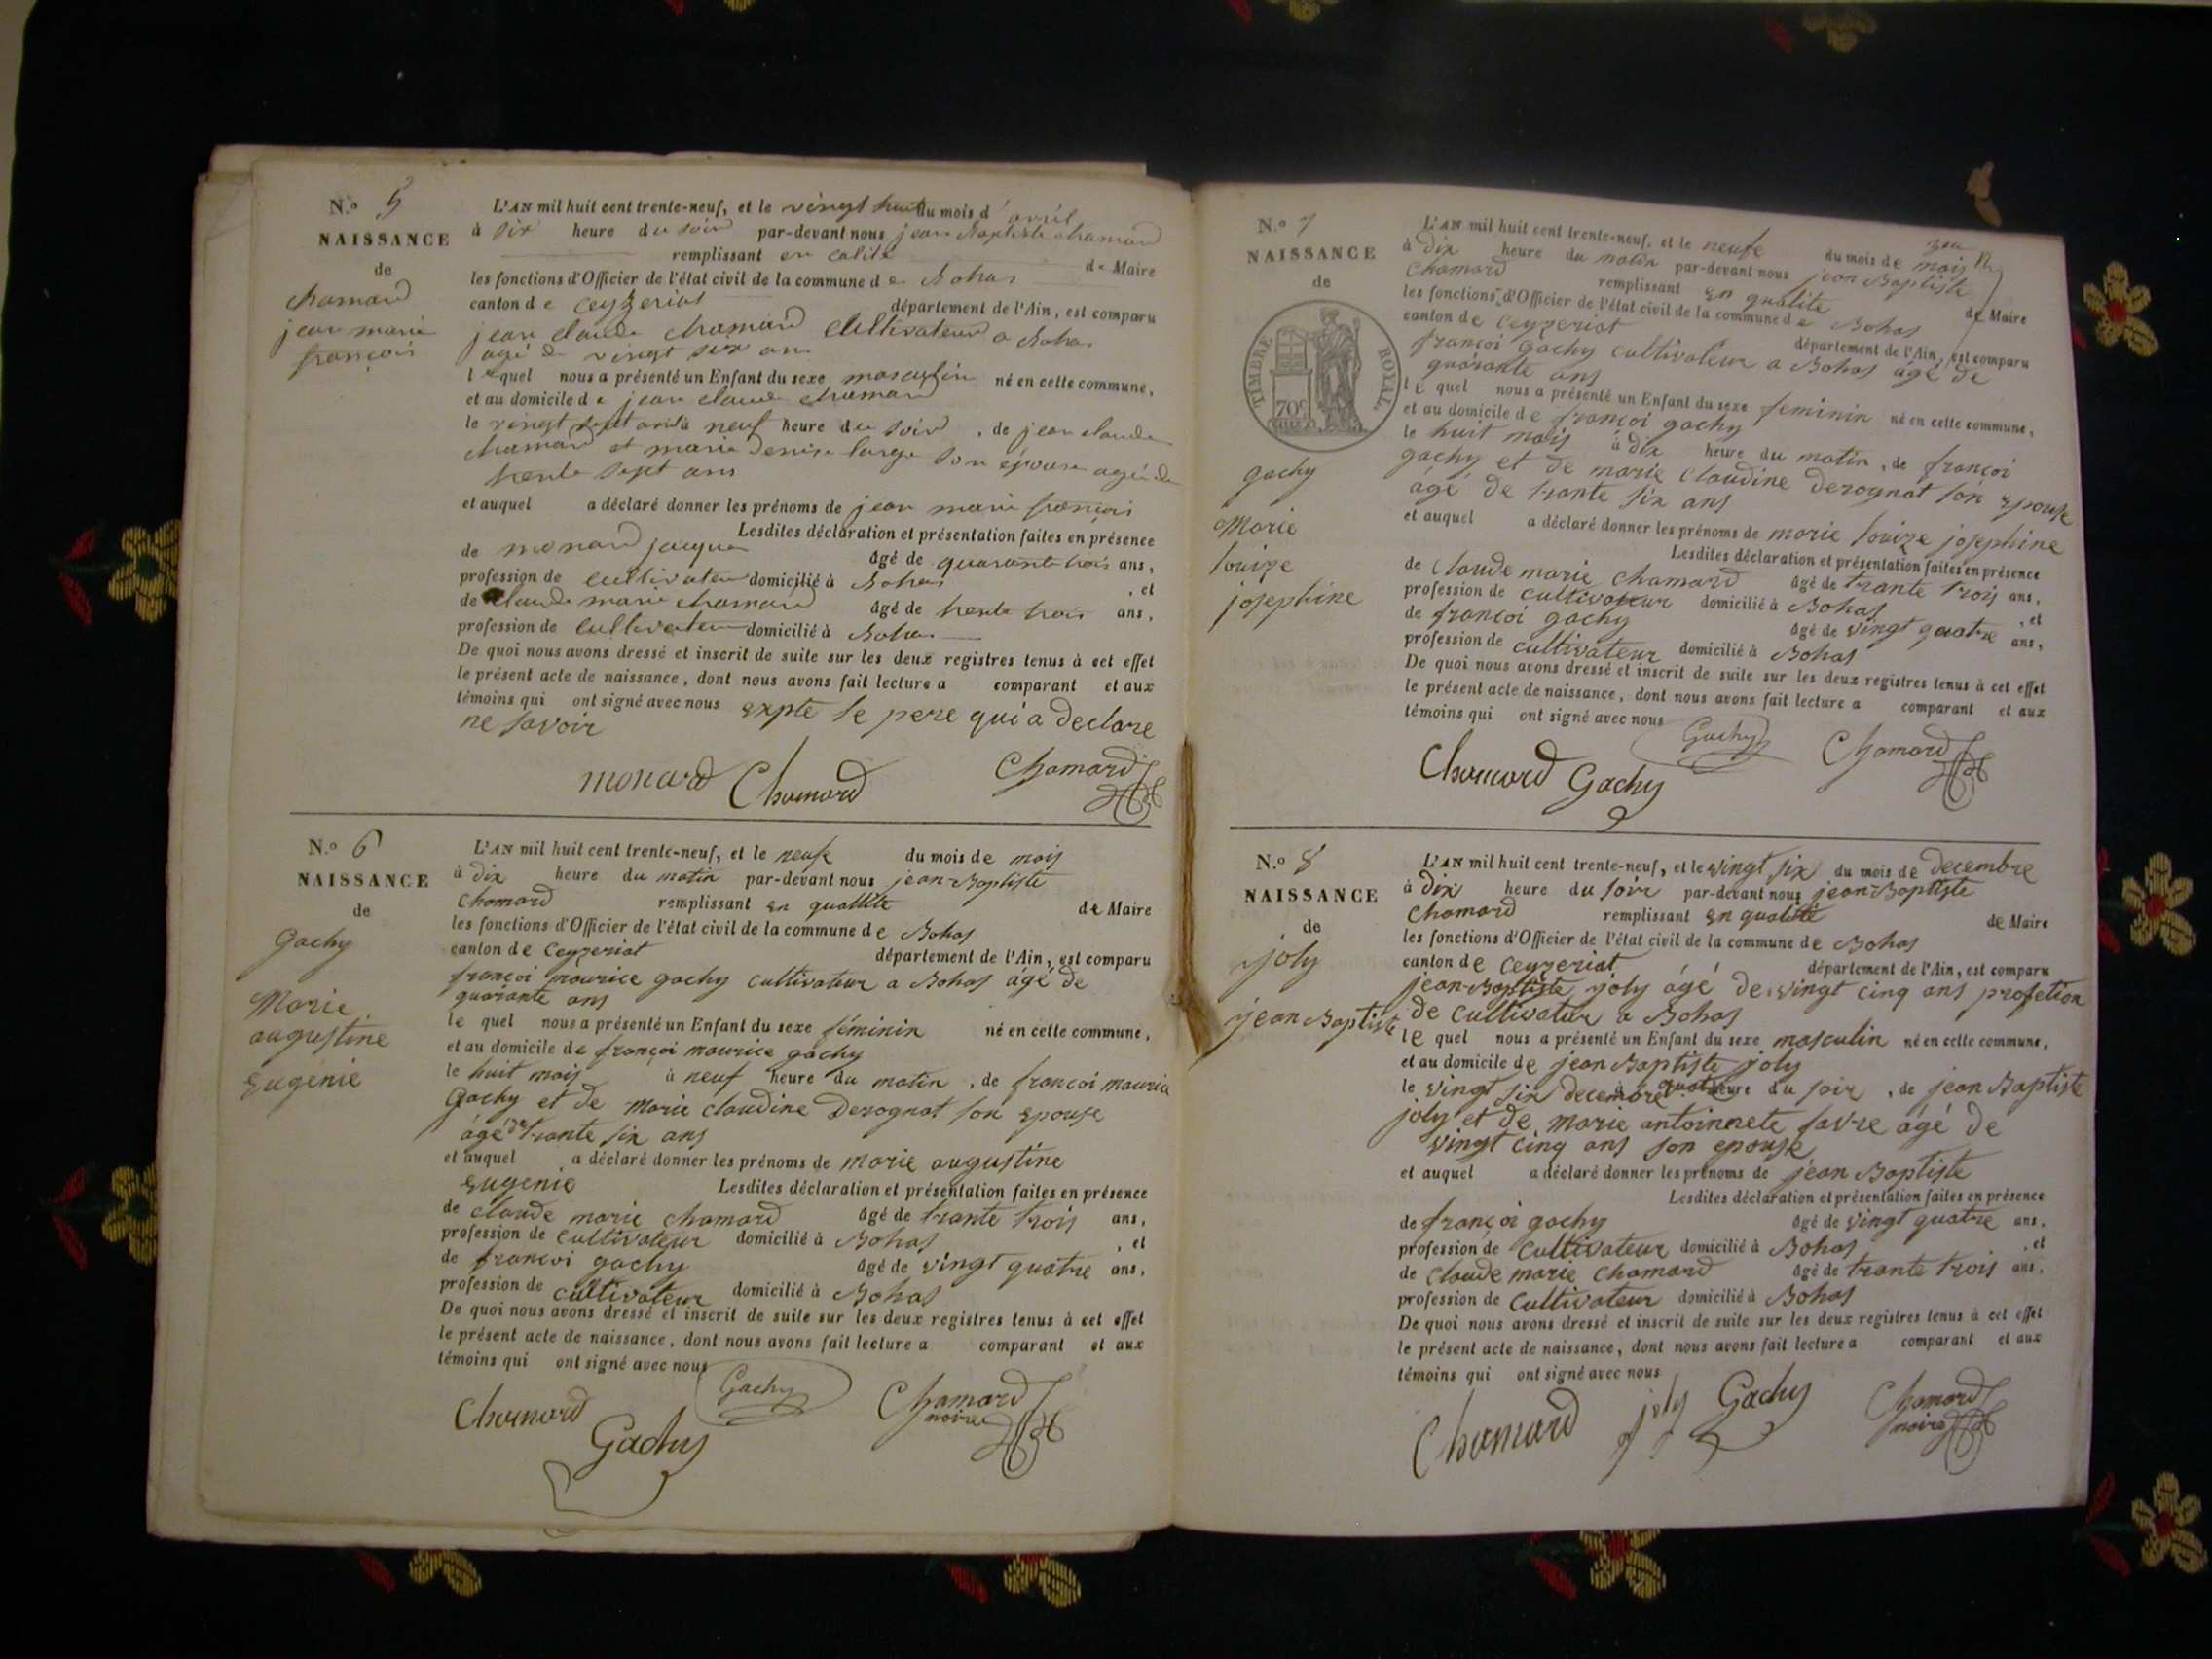 N.º 5
NAISSANCE
de
chamard
jean marie
françois
L'AN mil huit cent trente-neuf, et le vingt huit du mois d'avril
à six heure du soir par-devant nous jean Baptiste chamard
remplissant en calité de Maire
les fonctions d'Officier de l'état civil de la commune de Bohas
canton de ceyzeriat département de l'Ain, est comparu
jean claude chamard cultivateur a Bohas
agé de vingt six ans
lequel nous a présenté un Enfant du sexe masculin né en cette commune,
et au domicile de jean claude chamard
le vingt sept avril à neuf heure du soir, de jean claude
chamard et marie denise large son épouse agée de
trente sept ans
et auquel a déclaré donner les prénoms de jean marie françois
Lesdites déclaration et présentation faites en présence
de monard jacques âgé de quarante trois ans,
profession de cultivateur domicilié à Bohas, et
de claude marie chamard âgé de trente trois ans,
profession de cultivateur domicilié à Bohas
De quoi nous avons dressé et inscrit de suite sur les deux registres tenus à cet effet
le présent acte de naissance, dont nous avons fait lecture a comparant et aux
témoins qui ont signé avec nous expte le pere qui a declare
ne savoir
monard Chamard Chamard
N.º 6
NAISSANCE
de
gachy
Marie
augustine
Eugenie
L'AN mil huit cent trente-neuf, et le neufe du mois de mais
à dix heure du matin par-devant nous jean-Baptiste
chamard remplissant en quallite de Maire
les fonctions d'Officier de l'état civil de la commune de Bohas
canton de ceyzeriat département de l'Ain, est comparu
françoi maurice gachy cultivateur a Bohas âgé de
quarante ans
le quel nous a présenté un Enfant du sexe féminin né en cette commune,
et au domicile de françoi maurice gachy
le huit mais à neuf heure du matin, de françoi maurice
gachy et de Marie claudine Derognat son epouse
âgé de trante six ans
et auquel a déclaré donner les prénoms de marie augustine
eugenie Lesdites déclaration et présentation faites en présence
de claude marie chamard âgé de trante trois ans,
profession de cultivateur domicilié à Bohas, et
de françoi gachy âgé de vingt quatre ans,
profession de cultivateur domicilié à Bohas
De quoi nous avons dressé et inscrit de suite sur les deux registres tenus à cet effet
le présent acte de naissance, dont nous avons fait lecture a comparant et aux
témoins qui ont signé avec nous
Chamard Gachy Gachy Chamard
maire
N.º 7
NAISSANCE
de
TIMBRE ROYAL
70c
gachy
Marie
louize
josephine
L'AN mil huit cent trente-neuf, et le neufe du mois de mais
à dix heure du matin par-devant nous jean Baptiste
chamard remplissant en qualite de Maire
les fonctions d'Officier de l'état civil de la commune de Bohas
canton de ceyzeriat département de l'Ain, est comparu
françoi gachy cultivateur a Bohas âgé de
quarante ans
le quel nous a présenté un Enfant du sexe feminin né en cette commune,
et au domicile de françoi gachy
le huit mais à dix heure du matin, de françoi
gachy et de marie claudine derognat son epouse
âgé de trante six ans
et auquel a déclaré donner les prénoms de marie louize josephine
Lesdites déclaration et présentation faites en présence
de claude marie chamard âgé de trante trois ans,
profession de cultivateur domicilié à Bohas, et
de françoi gachy âgé de vingt quatre ans,
profession de cultivateur domicilié à Bohas
De quoi nous avons dressé et inscrit de suite sur les deux registres tenus à cet effet
le présent acte de naissance, dont nous avons fait lecture a comparant et aux
témoins qui ont signé avec nous
Chamard Gachy Gachy Chamard
N.º 8
NAISSANCE
de
joly
jean Baptiste
L'AN mil huit cent trente-neuf, et le vingt six du mois de decembre
à dix heure du soir par-devant nous jean-Baptiste
chamard remplissant en qualité de Maire
les fonctions d'Officier de l'état civil de la commune de Bohas
canton de ceyzeriat département de l'Ain, est comparu
jean-Baptiste joly âgé de vingt cinq ans profetion
de cultivateur a Bohas
le quel nous a présenté un Enfant du sexe masculin né en cette commune,
et au domicile de jean Baptiste joly
le vingt six decembre à quatre heure du soir, de jean Baptiste
joly et de marie antoinnete favre âgé de
vingt cinq ans son epouse
et auquel a déclaré donner les prénoms de jean Baptiste
Lesdites déclaration et présentation faites en présence
de françoi gachy âgé de vingt quatre ans,
profession de cultivateur domicilié à Bohas, et
de claude marie chamard âgé de trante trois ans,
profession de cultivateur domicilié à Bohas
De quoi nous avons dressé et inscrit de suite sur les deux registres tenus à cet effet
le présent acte de naissance, dont nous avons fait lecture a comparant et aux
témoins qui ont signé avec nous
Chamard joly Gachy Chamard
maire